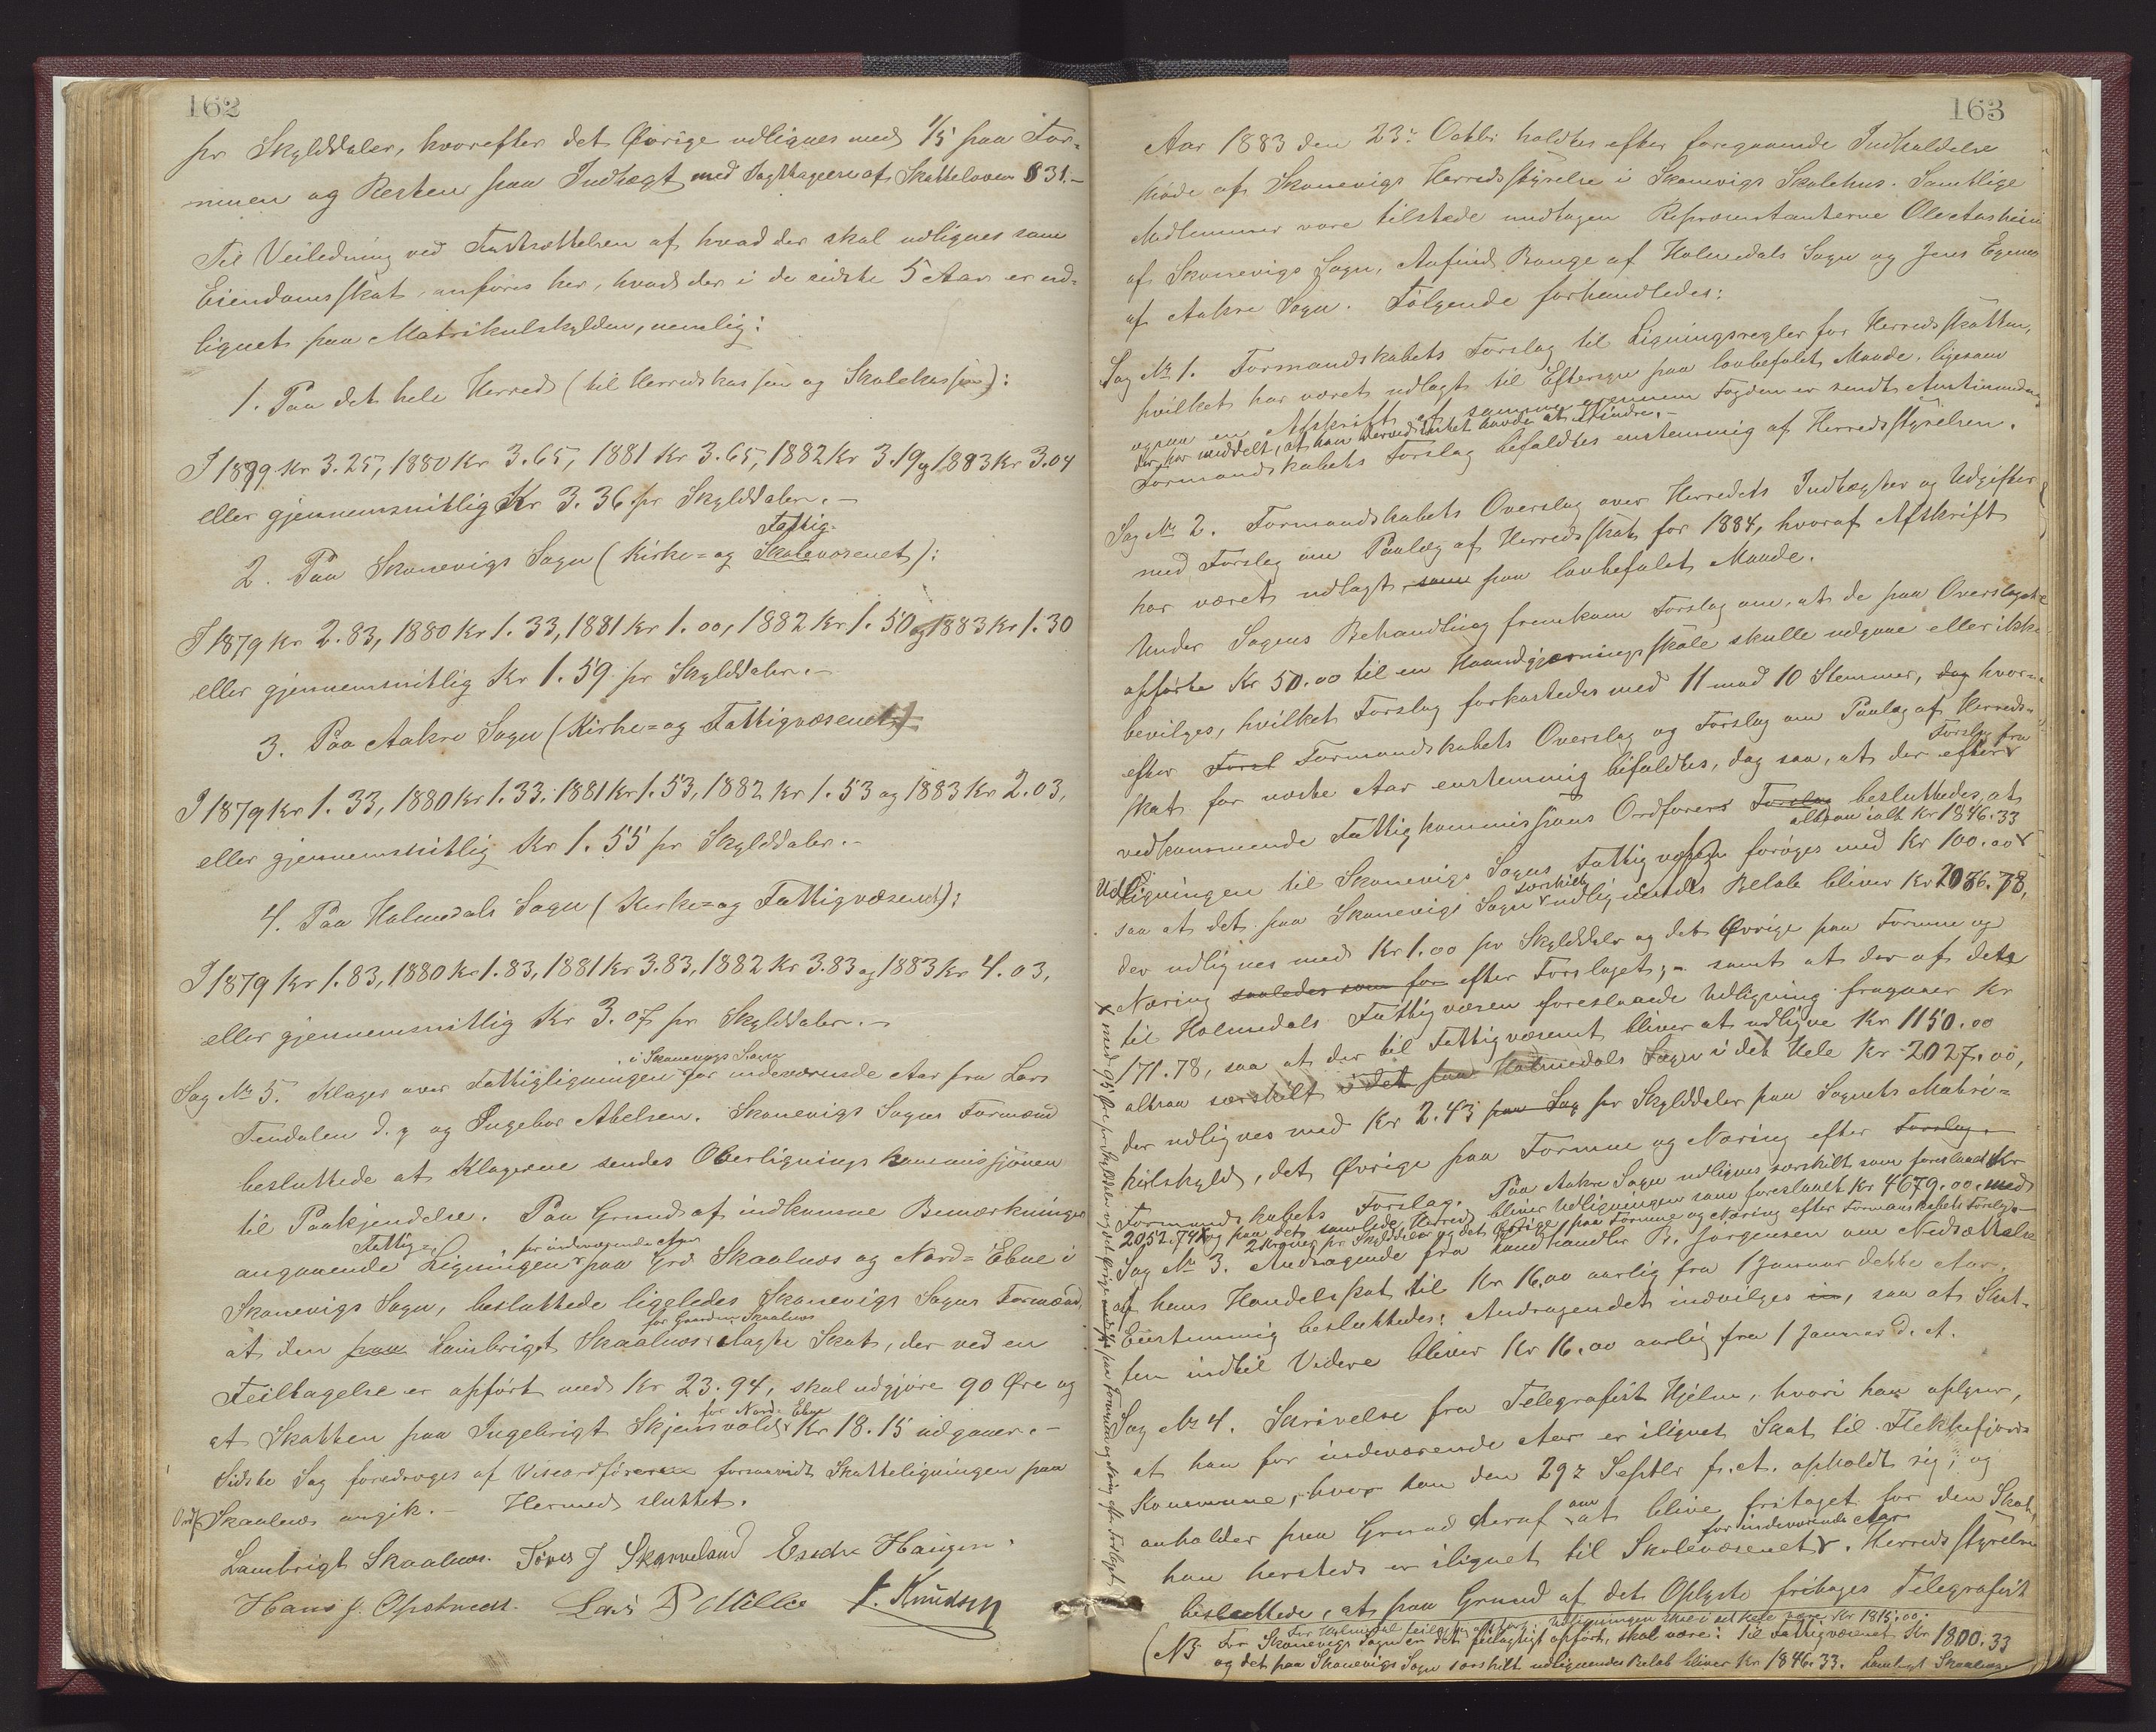 162
pr Skylddaler, hvorefter det Øvrige udlignes med 1/5 paa For-
muen og Resten paa Indtægt med Iagttagelse af Skatteloven § 31.-
Til Veiledning ved Fastsættelsen af hvad der skal udlignes som
Eiendomsskat, anføres her, hvad der i de sidste 5 Aar er ud-
lignet paa Matrikulskylden, nemlig:
1. Paa det hele Herred (til Herredskassen og Skolekassen):
I 1879 Kr 3.25, 1880 Kr 3.65, 1881 Kr 3.65, 1882 Kr 3.19 og 1883 Kr 3.04
eller gjennemsnitlig Kr 3.36 pr Skylddaler.-
Fattig-
2. Paa Skonevigs Sogn (Kirke- og Skolevæsenet):
I 1879 Kr 2.83, 1880 Kr 1.33, 1881 Kr 1.00, 1882 Kr 1.50 og 1883 Kr 1.30
eller gjennemsnitlig Kr 1.59 pr Skylddaler.-
3. Paa Aakre Sogn (Kirke- og Fattigvæsenet)
I 1879 Kr 1.33, 1880 Kr 1.33, 1881 Kr 1.53, 1882 Kr 1.53 og 1883 Kr 2.03,
eller gjennemsnitlig Kr 1.55 pr Skylddaler.-
4. Paa Holmedals Sogn (Kirke- og Fattigvæsenet):
I 1879 Kr 1.83, 1880 Kr 1.83, 1881 Kr 3.83, 1882 Kr 3.83 og 1883 Kr 4.03,
eller gjennemsnitlig Kr 3.07 pr Skylddaler.-
i Skonevigs Sogn
Sag № 5. Klager over Fattigligningen for indeværende Aar fra Lars
Tendalen d.y og Ingebor Abelsen. Skonevigs Sogns Formænd
besluttede at Klagerne sendes Overligningskommissjonen
til Paakjendelse. Paa Grund af indkomne Bemærkninger
Fattig- for indeværende Aar
angaaende Ligningen paa Grd Skaalnes og Nord-Ebne i
Skonevigs Sogn, besluttede ligeledes Skonevigs Sogns Formænd,
for Gaarden Skaalnes
at den paa Lambrigt Skaalnes lagte Skat, der ved en
Feiltagelse er opført med Kr 23.94, skal udgjøre 90 Øre og
for Nord-Ebne
at Skatten paa Ingebrigt Skjensvold Kr 18.15 udgaaer.-
Sidste Sag foredroges af Viseordføreren forsaavidt Skatteligningen paa
Skaalnes angik.- Hermed sluttet.
Lambrigt Skaalnes. Tøres J Skarveland Endre Haugen.
Hans J. Opstvedt. Lars P Milli A. Knudsen
163
Aar 1883 den 23. Octbr holdtes efter foregaaende Indkaldelse
Møde af Skonevigs Herredsstyrelse i Skonevigs Skolehus. Samtlige
Medlemmer vare tilstede undtagen Repræsentanterne Ole Aasheim
af Skonevigs Sogn, Aafind Bouge af Holmedals Sogn og Jens Egenes
af Aakre Sogn. Følgende forhandledes:
Sag № 1. Formandskabets Forslag til Ligningsregler for Herredsskatten,
hvilket har været udlagt til Eftersyn paa lovbefalet Maade, ligesom
ogsaa en Afskrift af samme gjennem Fogden er sendt Amtmanden
der har meddelt, at han Herved Intet havde at erindre.-
Formandskabets Forslag bifaldtes enstemmig af Herredsstyrelsen.
Sag № 2. Formandskabets Overslag over Herredets Indtægter og Udgifter
med Forslag om Paalæg af Herredsskat for 1884, hvoraf Afskrift
har været udlagt som paa lovbefalet Maade.
Under Sagens Behandling fremkom Forslag om, at de paa Overslaget
opførte Kr 50.00 til en Haandgjerningsskole skulle udgaae eller ikke
bevilges, hvilket Forslag forkastedes med 11 mod 10 Stemmer, dog hvor-
efter Forsl Formandskabets Overslag og Forslag om Paalæg af Herreds-
Forslag fra
skat for næste Aar enstemmig bifaldtes, dog saa, at der efter
vedkommende Fattigkommissjons Ordførers Forslag besluttedes, at
altsaa ialt Kr 1846.33
Udligningen til Skonevigs Sogns Fattigvæsen forøges med Kr 100.00
særskilt
saa at det paa Skonevigs Sogn udlignendes Beløb bliver Kr 2086.78,
der udlignes med Kr 1.00 pr Skylddaler og det Øvrige paa Formue og
Næring saaledes som for efter Forslaget;- samt at der af det
til Holmedals Fattigvæsen foreslaaede Udligning fragaaer Kr
171.78, saa at der til Fattigvæsenet bliver at udligne Kr 1150.00
altsaa særskilt i det paa Holmedals Sogn i det Hele Kr 2027.00,
der udlignes med Kr 2.43 paa Sog pr Skylddaler paa Sognets Matri-
kelskyld, det Øvrige paa Formue og Næring efter Forslag.
Formandskabets Forslag. Paa Aakre Sogn udlignes særskilt som foreslaaet Kr
2052.74 og paa det samlede Herred bliver Udligningen som foreslaaet Kr 4679.00, med
2 Kroner pr Skylddaler og det Øvrige paa Formue og Næring efter Formandskabets Forslag-
x med 93 Øre pr Skylddaler og det Øvrige paa Formue og Næring efter Forslaget.
Sag № 3. Andragende fra Landhandler R. Jørgensen om Nedsættelse
af hans Handelsskat til Kr 16.00 aarlig fra 1 Januar dette Aar.
Enstemmig besluttedes: Andragendet indvilges, saa at Skat-
ten indtil Videre bliver Kr 16.00 aarlig fra 1 Januar d. A.
Sag № 4. Skrivelse fra Telegrafist Hjelm, hvori han oplyser,
at han for indeværende Aar er ilignet Skat til Flekkefjords
Kommune, hvor han den 29. Septbr f.A. opholdt sig; og
anholder paa Grund deraf om at blive fritaget for den Skat,
for indeværende Aar
han hersteds er ilignet til Skolevæsenet. Herredsstyrelsen
besluttede, at paa Grund af det Oplyste fritages Telegrafist
Udligningen skal i det Hele være Kr 1815.00.
(NB. For Skonevigs Sogn er det feilagtigt opført, skal være: Til Fattigvæsenet Kr 1800.33
og det paa Skonevigs Sogn særskilt udlignendes Beløb bliver Kr 1846.33. Lambrigt Skaalnes.